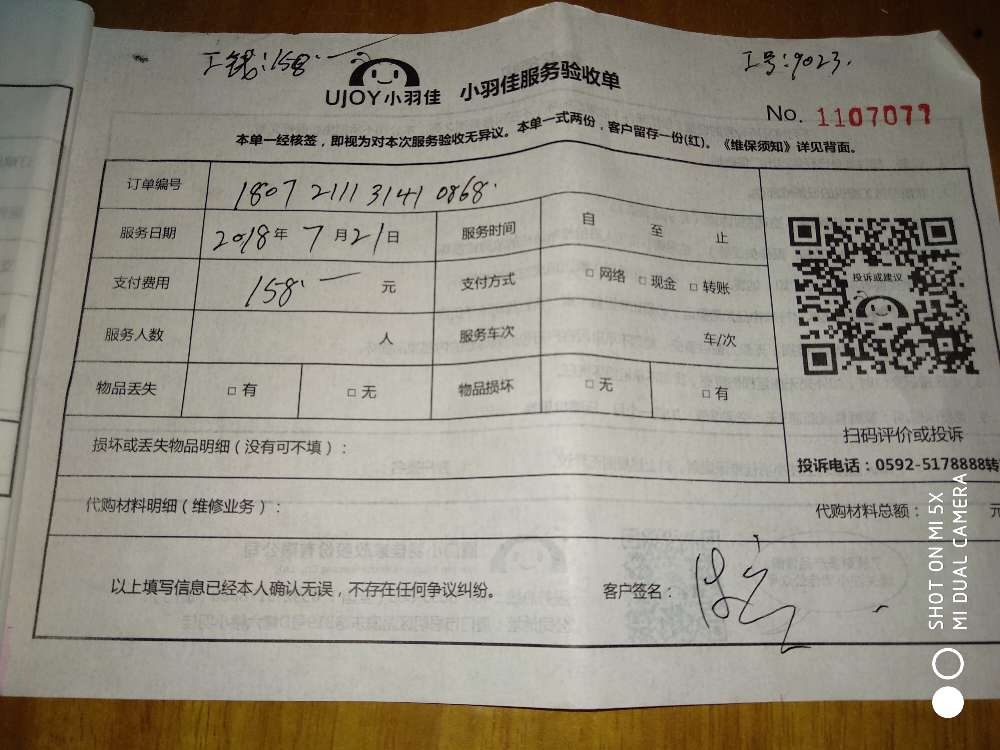 工钱:158.一
工号:9023.
UJOY小羽佳 小羽佳服务验收单
No. 1107077
本单一经核签，即视为对本次服务验收无异议。本单一式两份，客户留存一份(红)。《维保须知》详见背面。
订单编号 1807 2111 3141 0868.
服务日期 2018年 7月21日 服务时间 自 至 止
支付费用 158.一 元 支付方式 □ 网络 □ 现金 □ 转账
投诉或建议
服务人数 人 服务车次 车/次
物品丢失 □ 有 □ 无 物品损坏 □ 无 □ 有
扫码评价或投诉
损坏或丢失物品明细（没有可不填）：
投诉电话：0592-5178888转
代购材料明细（维修业务）： 代购材料总额： 元
以上填写信息已经本人确认无误，不存在任何争议纠纷。 客户签名：
SHOT ON MI 5X
MI DUAL CAMERA